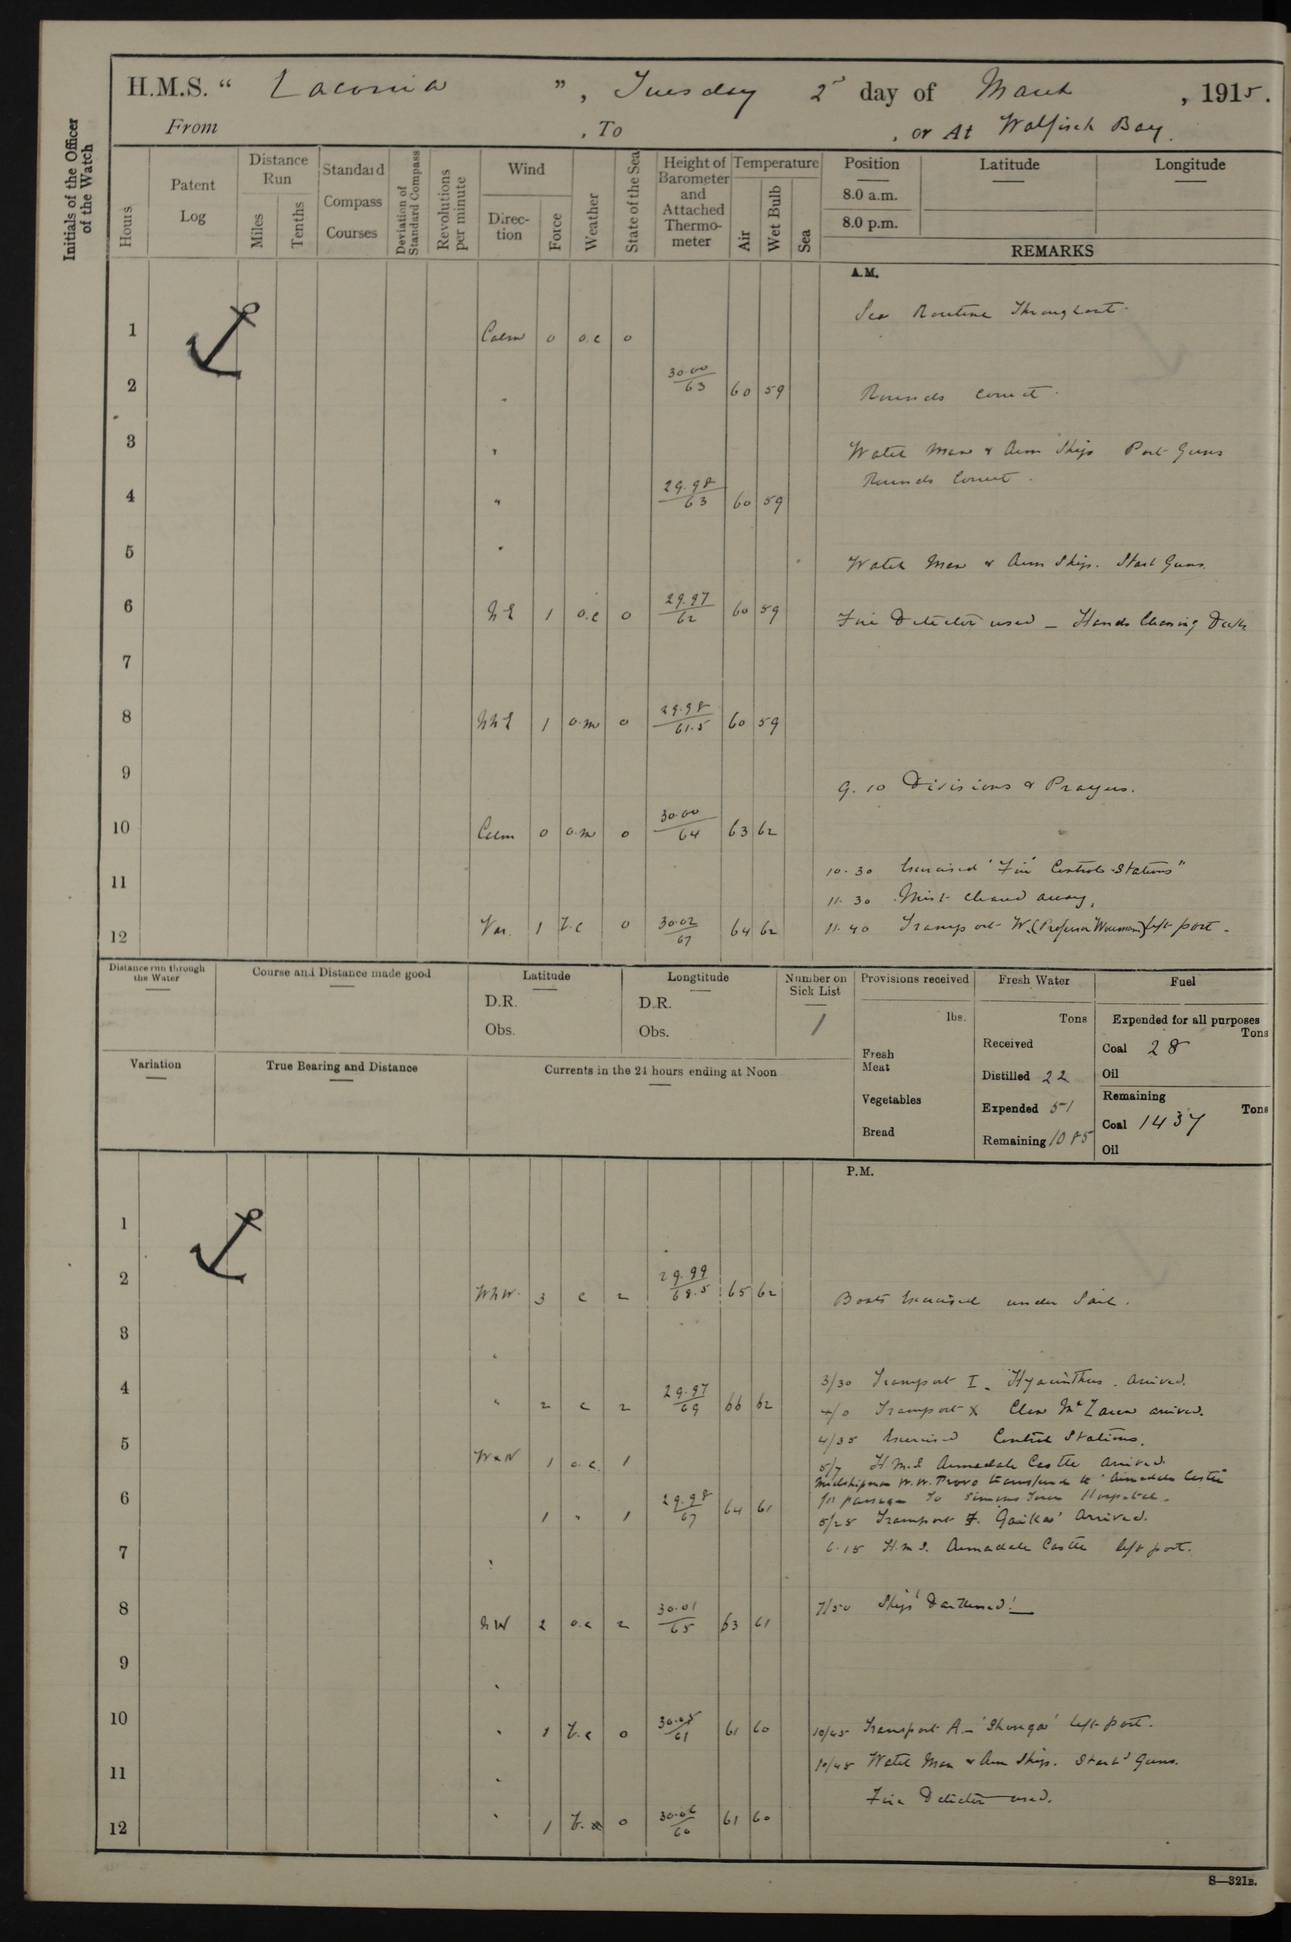 H.M.S. " Laconia ", Tuesday 2d day of March, 1915.
From , To , or At Walfisch Bay.
Initials of the Officer of the Watch
Hours
Patent Log
Distance Run
Miles
Tenths
Standard Compass Courses
Deviation of Standard Compass
Revolutions per minute
Wind
Direction
Force
Weather
State of the Sea
Height of Barometer and Attached Thermometer
Temperature
Air
Wet Bulb
Sea
Position
8.0 a.m.
8.0 p.m.
Latitude
Longitude
REMARKS
A.M.
Sea Routine Throughout.
1 Calm 0 o.c 0
2 " 30.00/63 60 59 Rounds Correct.
3 " Watch Man & Arm Ships Port Guns
Rounds Correct.
4 " 29.98/63 60 59
5 " Watch Man & Arm Ships. Starb Guns.
6 N E 1 o.c 0 29.97/62 60 59 Fire Detector used - Hands Cleaning Decks
7
8 NNE 1 o.m 0 29.98/61.5 60 59
9 9.10 Divisions & Prayers.
10 Calm 0 o.m 0 30.00/64 63 62
11 10.30 Exercised 'Fire' Control Stations"
11.30 Mist cleared away,
12 Var. 1 b.c 0 30.02/67 64 62 11.40 Transport W. (Professor Woermann) left port.
Distance run through the Water
Course and Distance made good
Latitude
D.R.
Obs.
Longtitude
D.R.
Obs.
Number on Sick List
1
Provisions received
lbs.
Fresh Meat
Vegetables
Bread
Fresh Water
Tons
Received
Distilled 22
Expended 51
Remaining 1085
Fuel
Expended for all purposes
Tons
Coal 28
Oil
Remaining
Tons
Coal 1437
Oil
Variation
True Bearing and Distance
Currents in the 24 hours ending at Noon
P.M.
1
2 WNW. 3 c 2 29.99/68.5 65 62 Boats Exercised under Sail.
3 "
3/30 Transport I. Hyacinthus. arrived.
4 " 2 c 2 29.97/69 66 62 4/0 Transport X Clan McLaren arrived.
4/35 Exercised Control Stations.
5 WxN 1 o.c. 1 5/7 H.M.S Armadale Castle arrived.
Midshipman W.W. Provo transferred to "Armadale Castle"
for passage to Simons Town Hospital.
6 1 " 1 29.98/67 64 61 5/28 Transport F. 'Gaika' Arrived.
7 " 6.15 H.M.S. Armadale Castle left port.
8 NW 2 o.c 2 30.01/65 63 61 7/50 Ships 'Darkened'!
9 "
10 " 1 b.c 0 30.05/61 61 60 10/45 Transport A - 'Shonga' left port.
10/48 Watch Man & Arm Ships. Starbd Guns.
11 " Fire Detector used.
12 " 1 b. 0 30.06/60 61 60
S—321B.